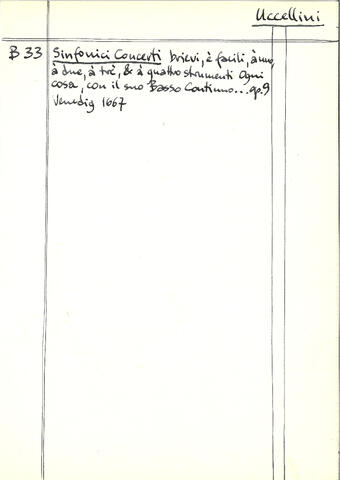 Uccellini
B 33 Sinfonici Concerti brievi, è facili, à uno,
à due, à trè, & à quattro strumenti Ogni
cosa, con il suo Basso Continuo... op. 9
Venedig 1667